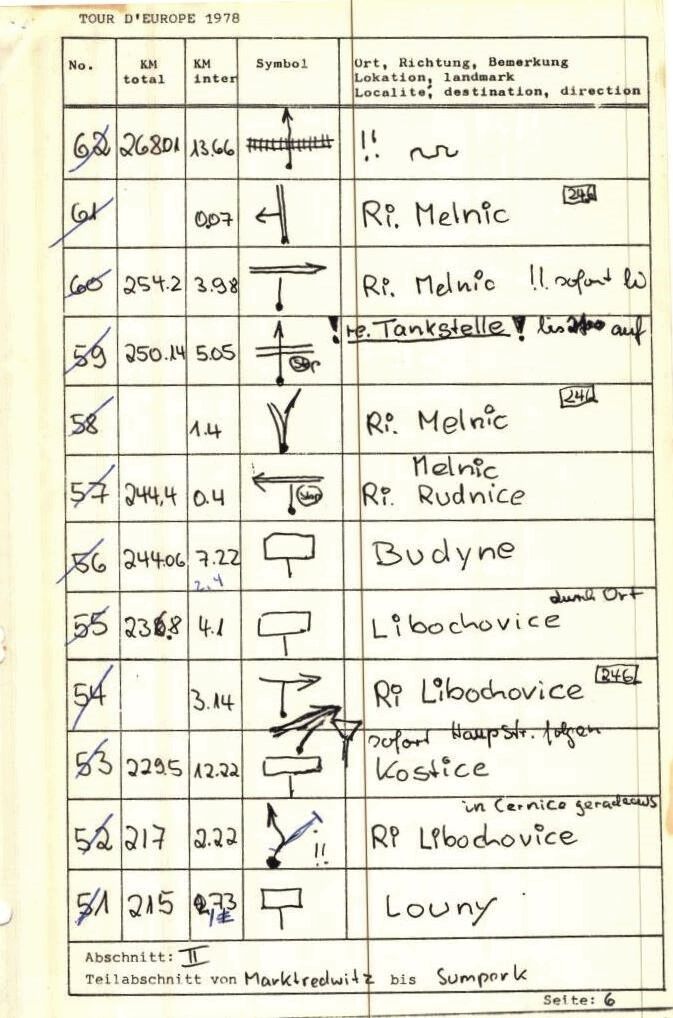 TOUR D'EUROPE 1978
No. KM total KM inter Symbol Ort, Richtung, Bemerkung
Lokation, landmark
Localite, destination, direction
62 268.01 13.66 !!
61 0.07 Ri. Melnic 246
60 254.2 3.98 Ri. Melnic !! sofort li
59 250.14 5.05 Stop ! re. Tankstelle ! bis auf
58 1.4 Ri. Melnic 246
57 244,4 0.4 Stop Melnic
Ri. Rudnice
56 244.06 7.22 Budyne
2,4
durch Ort
55 236.8 4.1 Libochovice
54 3.14 Ri Libochovice 246
sofort Haupstr. folgen
53 229.5 12.22 Kostice
in Cernice geradeaus
52 217 2.22 !! Ri Libochovice
51 215 2,73 Louny
Abschnitt: II
Teilabschnitt von Marktredwitz bis Sumpork
Seite: 6